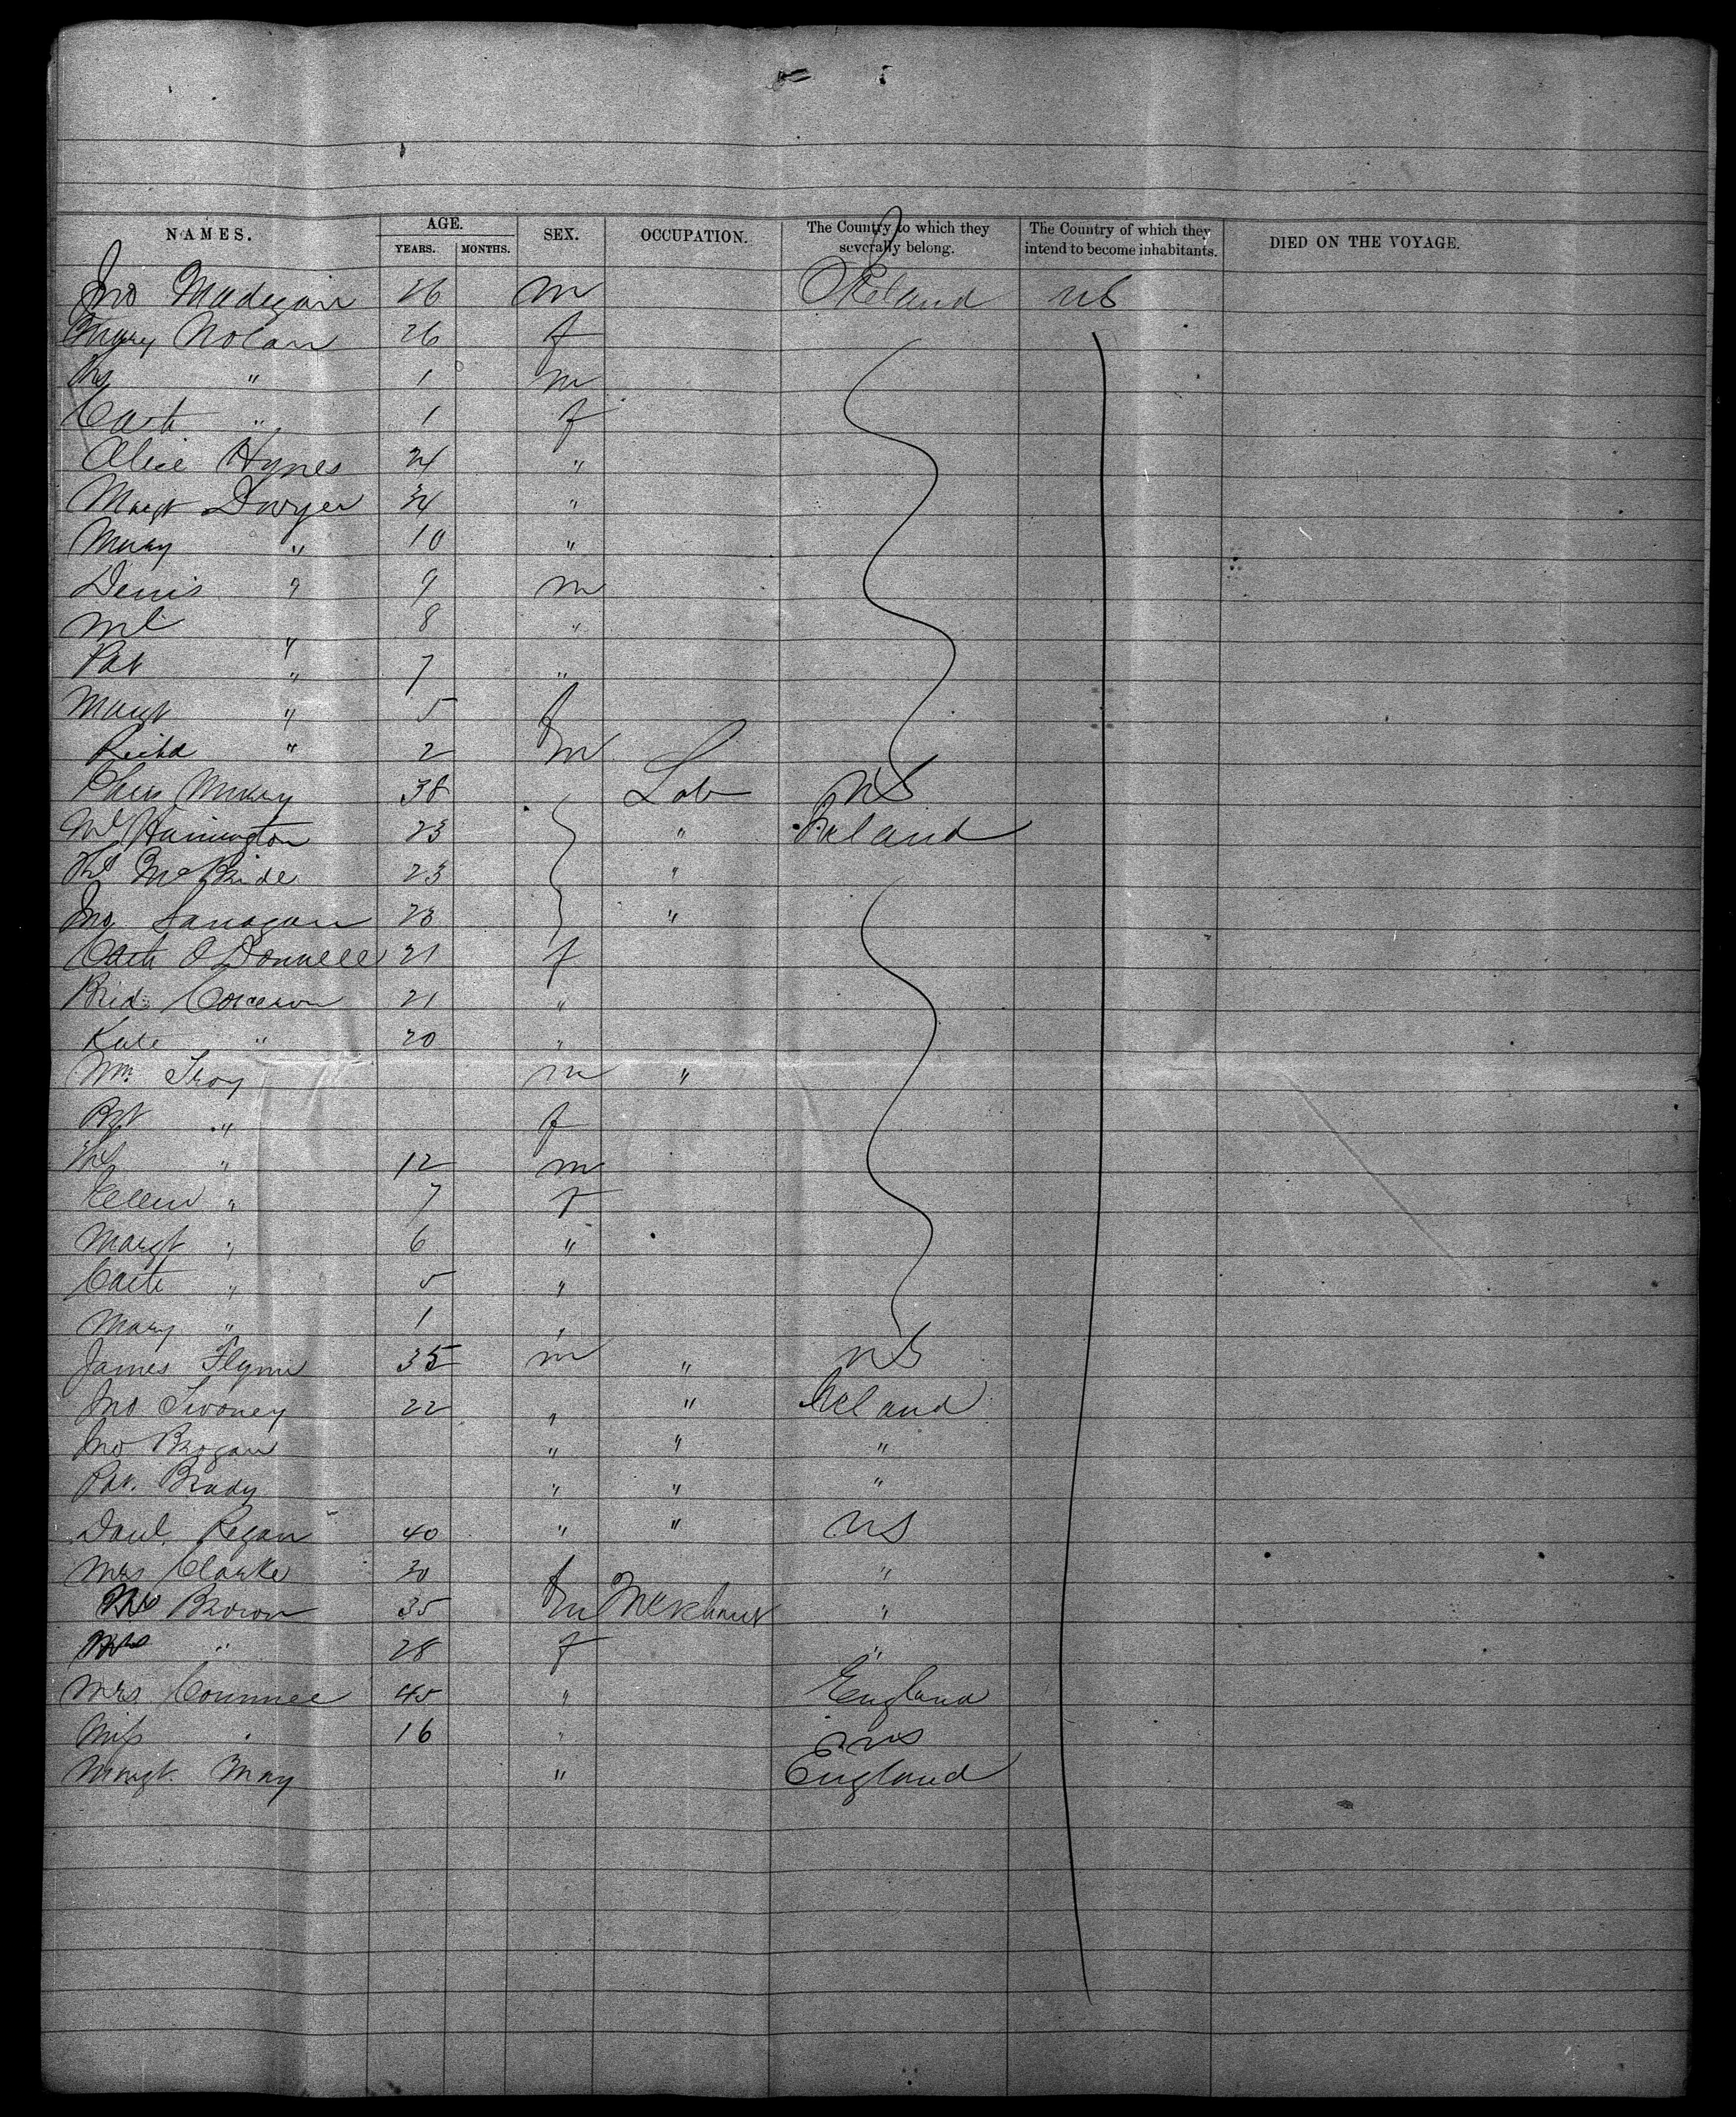 NAMES. AGE. SEX. OCCUPATION. The Country to which they severally belong. The Country of which they intend to become inhabitants. DIED ON THE VOYAGE.
YEARS. MONTHS.
Jno Madigan 26 m Ireland US
Mary Nolan 26 f
" 1 m
Cath " 1 f
Alice Hynes 24 "
Margt Dwyer 34 "
Mary " 10 "
Denis " 9 m
Ml " 8 "
Pat " 7 "
Margt " 5 f
Richd " 2 m
38 Lab US
Ml Harrington 23 " Ireland
McBride 23 "
Jno 23 "
Cath O'Donnell 21 f
Brid. Corcoran 21 "
Kate " 20 "
Wm Troy m "
Bgt " f
" 12 m
Ellen " 7 f
Margt " 6 "
Cath " 5 "
Mary " 1 "
James Flynn 35 m " US
Jno Twoney 22 " " Ireland
Jno Brogan " " "
Pat. Brady " " "
Danl. Regan 40 " " US
Mrs Clarke 30 f "
Mr Brown 35 m Merchant "
Mrs " 28 f "
Mrs 45 " England
Miss " 16 " US
Margt. May " England